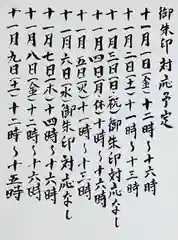 御朱印対応予定
十一月一日(金)十二時〜十六時
十一月二日(土)十一時〜十三時
十一月三日(日)祝御朱印対応なし
十一月四日(月)休十時〜十六時
十一月五日(火)十一時〜十三時
十一月六日(水)御朱印対応なし
十一月七日(木)十四時〜十六時
十一月八日(金)十二時〜十六時
十一月九日(土)十二時〜十五時